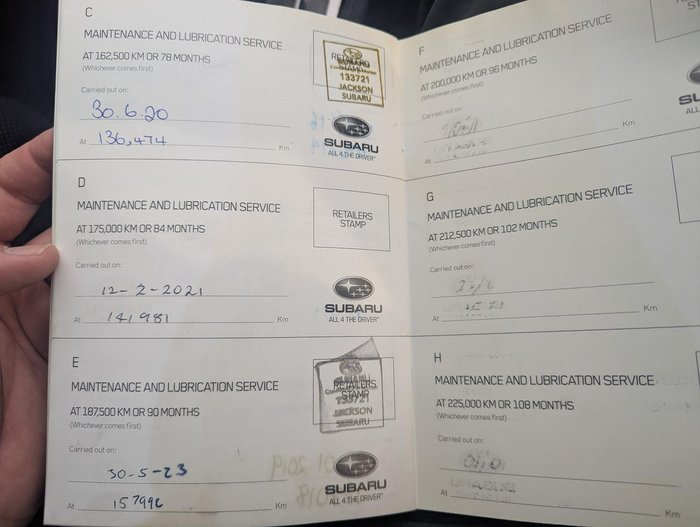 C
MAINTENANCE AND LUBRICATION SERVICE
AT 162,500 KM OR 78 MONTHS
(Whichever comes first)
Carried out on:
30.6.20
At 136,474 Km
RETAILERS
STAMP
133721
JACKSON
SUBARU
SUBARU
ALL 4 THE DRIVER
D
MAINTENANCE AND LUBRICATION SERVICE
AT 175,000 KM OR 84 MONTHS
(Whichever comes first)
Carried out on:
12-2-2021
At 141981 Km
RETAILERS
STAMP
SUBARU
ALL 4 THE DRIVER
E
MAINTENANCE AND LUBRICATION SERVICE
AT 187,500 KM OR 90 MONTHS
(Whichever comes first)
Carried out on:
30-5-23
At 157996 Km
RETAILERS
STAMP
133721
JACKSON
SUBARU
SUBARU
ALL 4 THE DRIVER
F
MAINTENANCE AND LUBRICATION SERVICE
AT 200,000 KM OR 96 MONTHS
(Whichever comes first)
Carried out on:
At Km
STAMP
SU
ALL
G
MAINTENANCE AND LUBRICATION SERVICE
AT 212,500 KM OR 102 MONTHS
(Whichever comes first)
Carried out on:
At Km
H
MAINTENANCE AND LUBRICATION SERVICE
AT 225,000 KM OR 108 MONTHS
(Whichever comes first)
Carried out on:
At Km